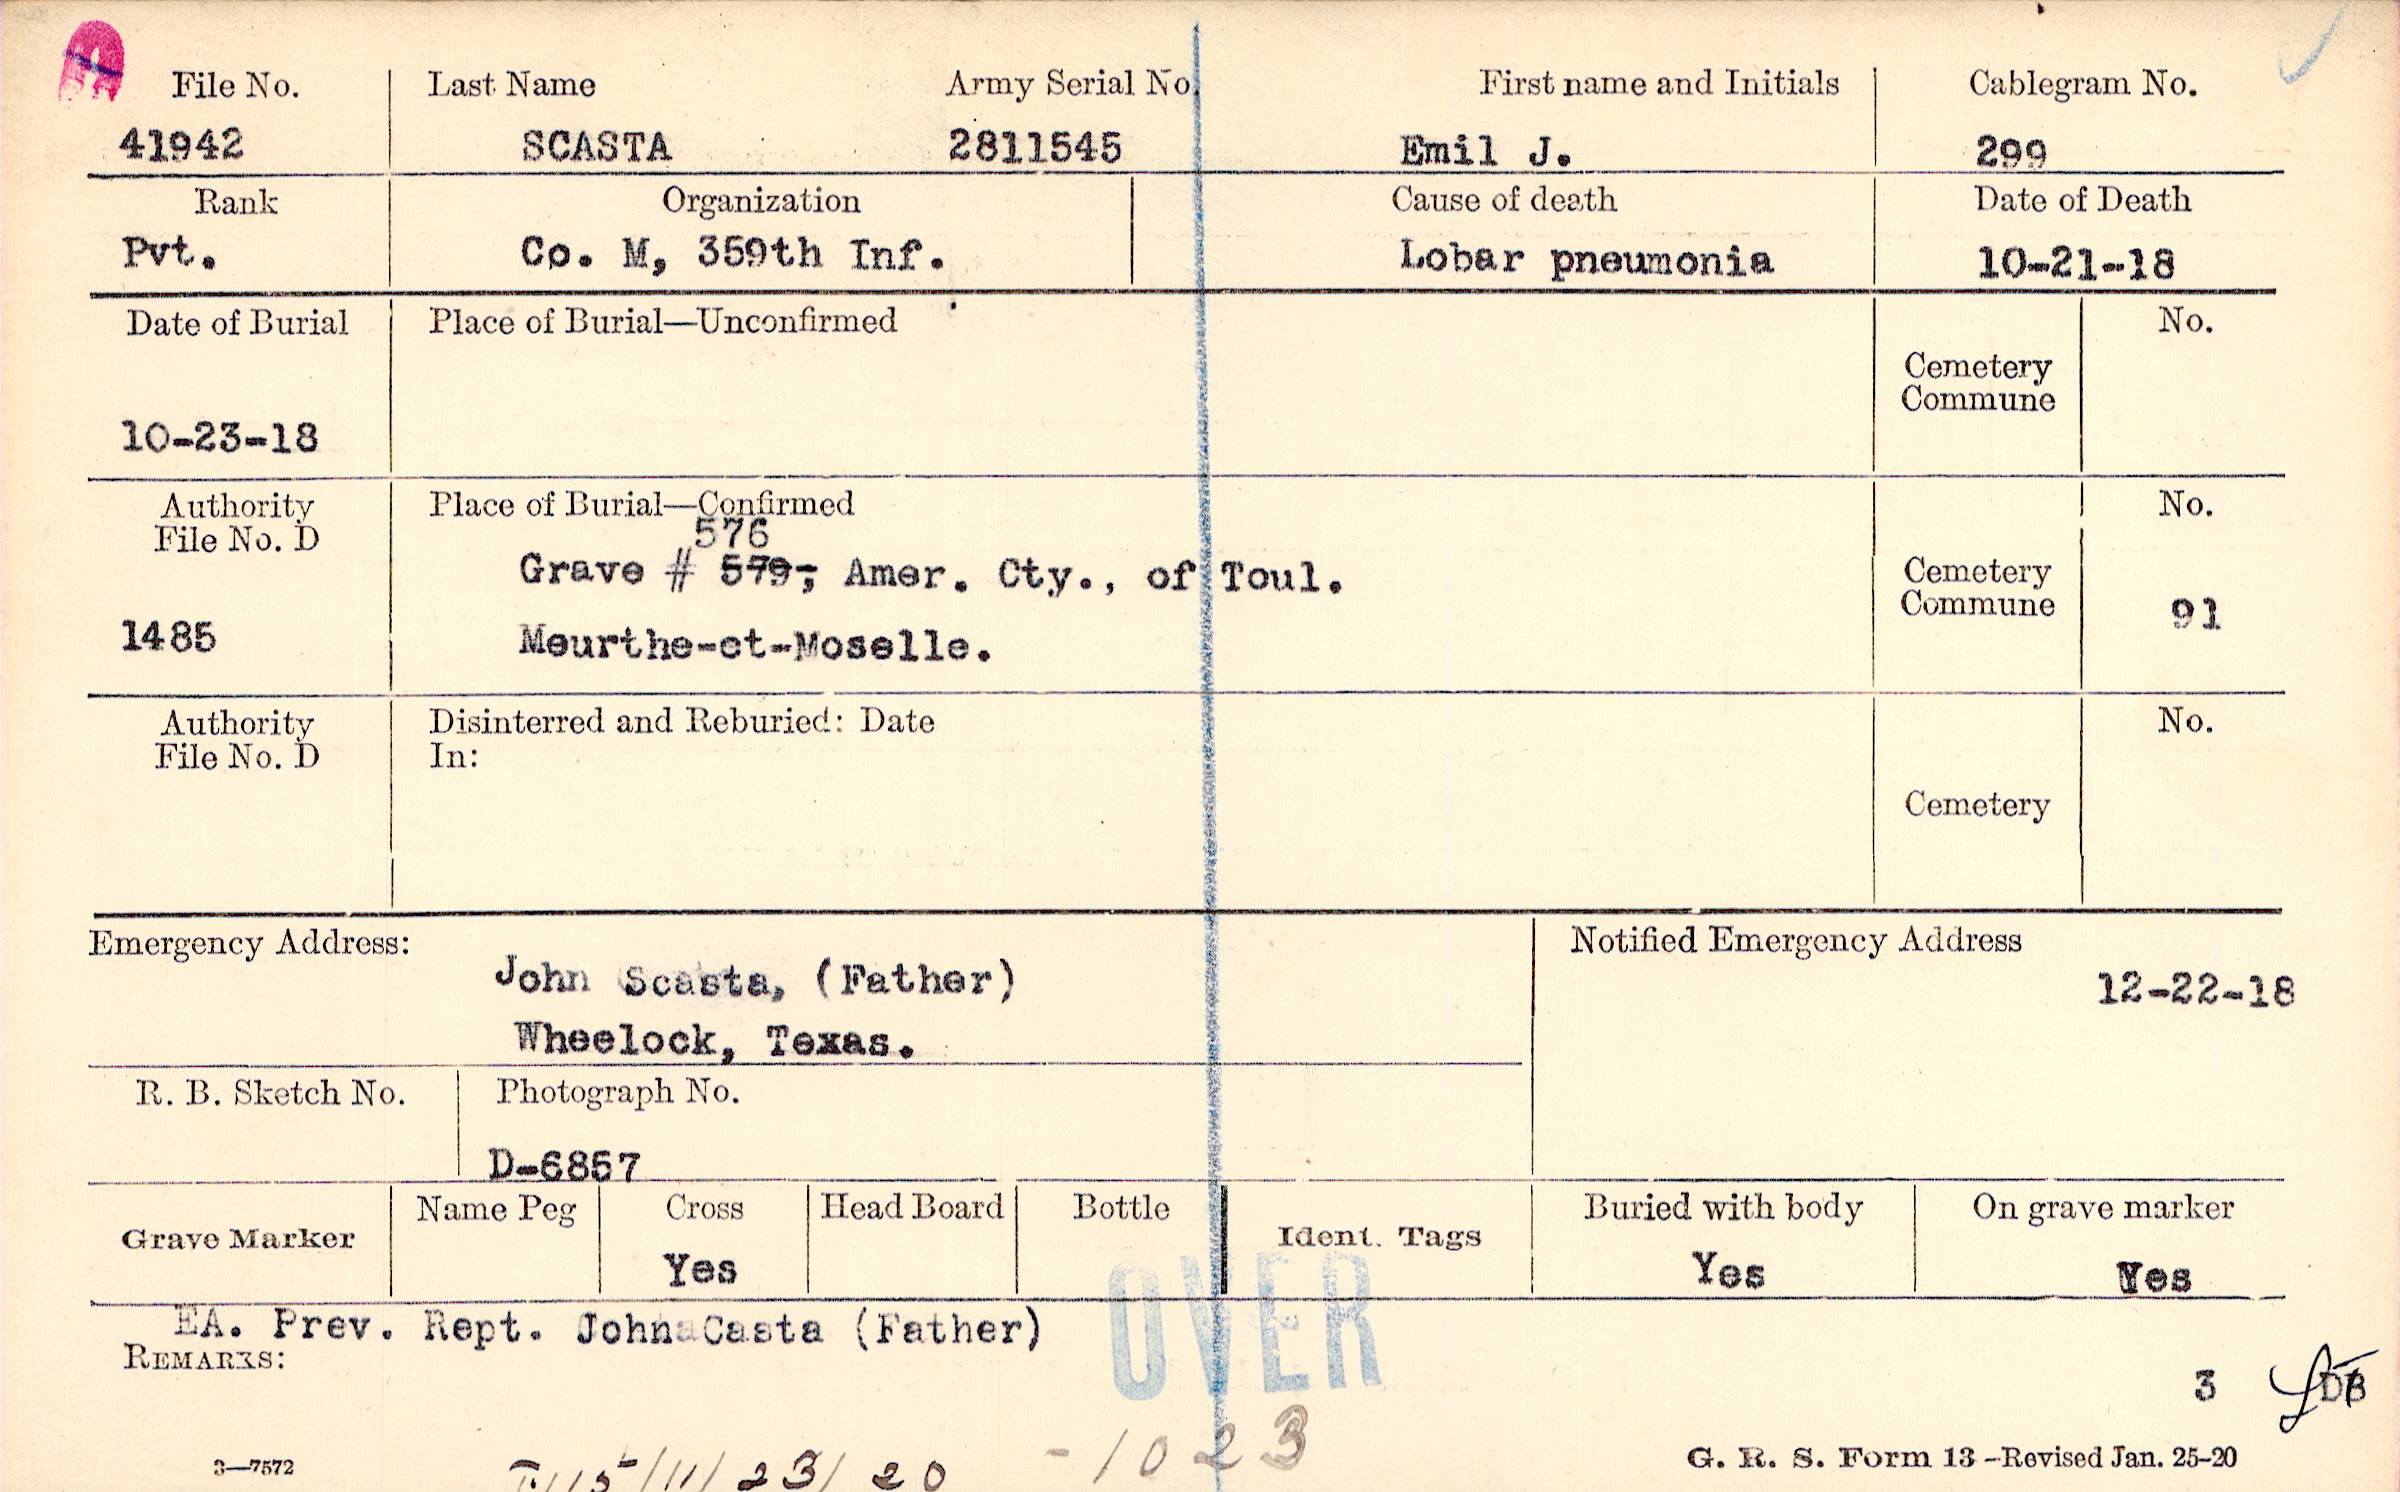 File No. Last Name Army Serial No. First name and Initials Cablegram No.
41942 SCASTA 2811545 Emil J. 299
Rank Organization Cause of death Date of Death
Pvt. Co. M, 359th Inf. Lobar pneumonia 10-21-18
Date of Burial Place of Burial—Unconfirmed No.
Cemetery
Commune
10-23-18
Authority Place of Burial—Confirmed No.
File No. D 576
Grave # 579, Amer. Cty., of Toul. Cemetery
Commune 91
1485 Meurthe-et-Moselle.
Authority Disinterred and Reburied: Date No.
File No. D In:
Cemetery
Emergency Address: Notified Emergency Address
John Scasta, (Father) 12-22-18
Wheelock, Texas.
R. B. Sketch No. Photograph No.
D-6857
Name Peg Cross Head Board Bottle Buried with body On grave marker
Grave Marker Ident. Tags
Yes Yes Yes
OVER
EA. Prev. Rept. John Casta (Father)
REMARKS:
3
-1023
3—7572 /11/23/20 G. R. S. Form 13-Revised Jan. 25-20